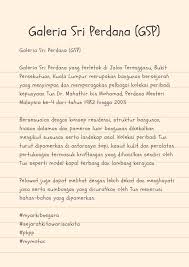 Galeria Sri Perdana (GSP)
Galeria Sri Perdana (GSP)
Galeria Sri Perdana yang terletak di Jalan Terengganu, Bukit
Persekutuan, Kuala Lumpur merupakan bangunan bersejarah
yang menyimpan dan mempamerkan pelbagai koleksi peribadi
kepunyaan Tun Dr. Mahathir bin Mohamad, Perdana Menteri
Malaysia ke-4 dari tahun 1982 hingga 2003
Bersesuaian dengan konsep residensi, struktur bangunan,
hiasan dalaman dan panorama luar bangunan dikekalkan
mengikut susunan serta landskap asal. Koleksi peribadi Tun
turut dipamerkan di antaranya topi, kasut kulit dan peralatan
pertukangan termasuk kraftangan yang dihasilkan sendiri oleh
Tun seperti model kapal terbang dan lambang kerajaan.
Pelawat juga dapat melihat dengan lebih dekat dan menghayati
jasa serta sumbangan yang dicurahkan oleh Tun menerusi
bahan-bahan yang dipamerkan.
#myarkibnegara
#sejarahkitawarisankita
#pkpp
#mymotac